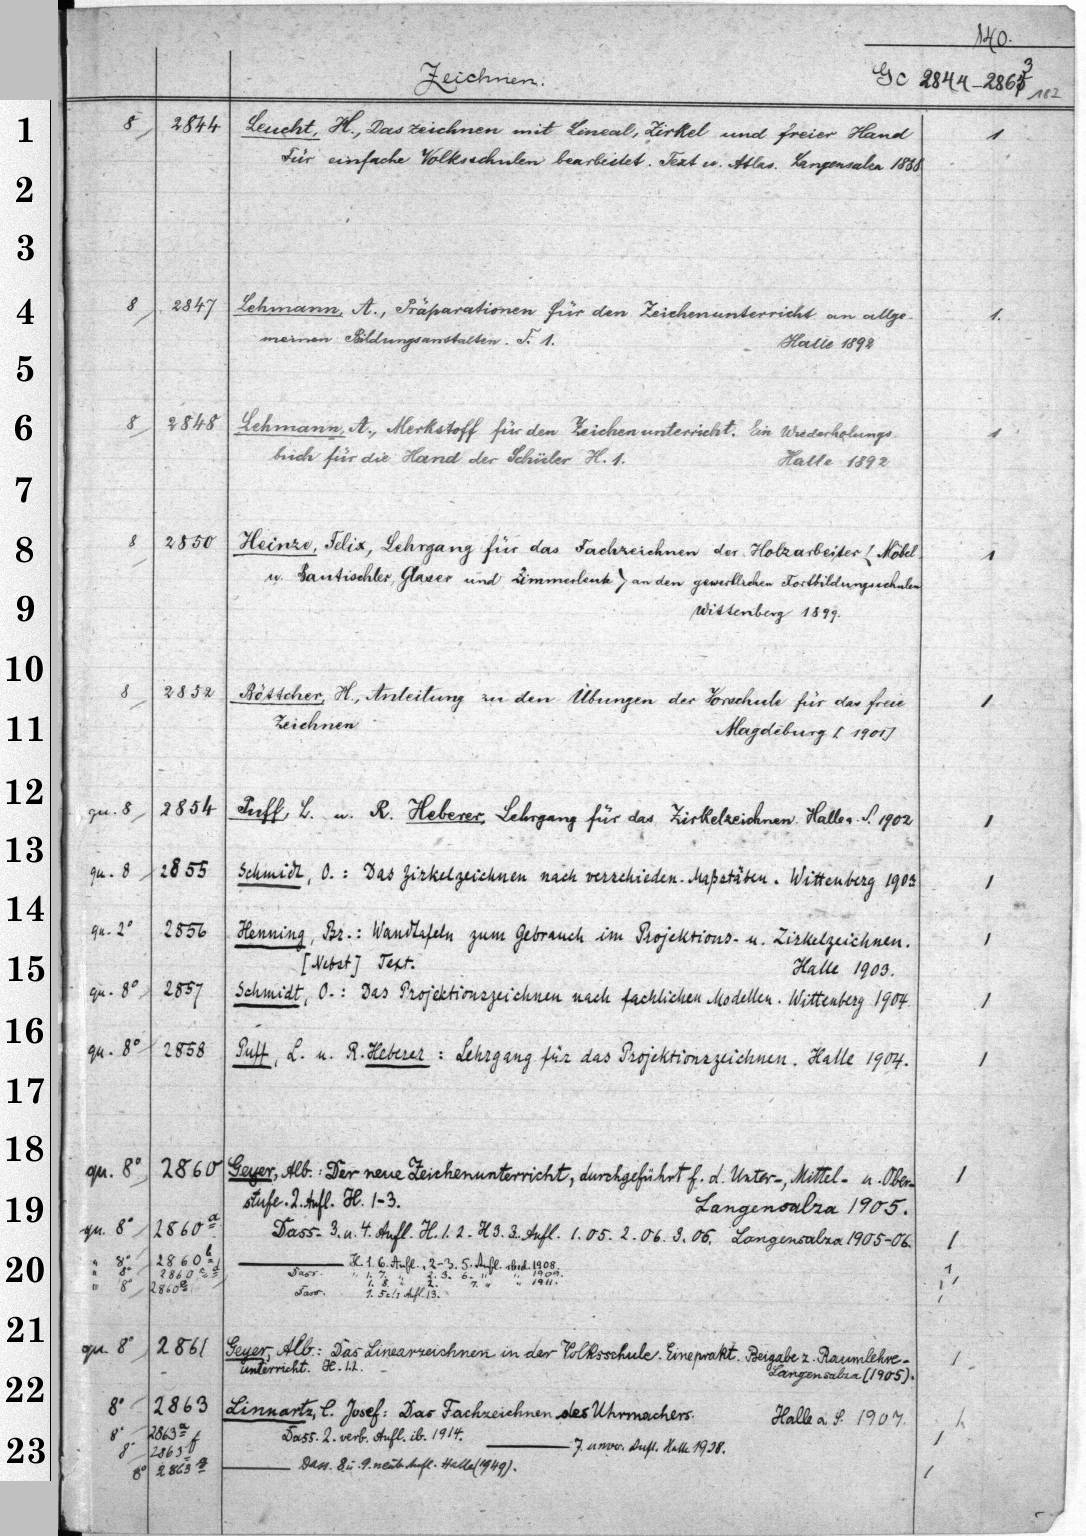 140.
Zeichnen.
Gc 2844-2863
182
1
8 2844 Leucht, H., Das Zeichnen mit Lineal, Zirkel und freier Hand 1
Für einfache Volksschulen bearbeitet. Text u. Atlas. Langensalza 1888
2
3
4
8 2847 Lehmann, A., Präparationen für den Zeichenunterricht an allge- 1.
meinen Bildungsanstalten. T. 1. Halle 1892
5
6
8 2848 Lehmann, A., Merkstoff für den Zeichenunterricht. Ein Wiederholungs- 1
buch für die Hand der Schüler H. 1. Halle 1892
7
8
8 2850 Heinze, Felix, Lehrgang für das Fachzeichnen der Holzarbeiter (Möbel 1
u. Bautischler, Glaser und Zimmerleute) an den gewerblichen Fortbildungsschulen
9
Wittenberg 1899.
10
8 2852 Böttcher, H., Anleitung zu den Übungen der Vorschule für das freie 1
11
Zeichnen Magdeburg [1901]
12
qu. 8 2854 Puff, L. u. R. Heberer, Lehrgang für das Zirkelzeichnen. Halle a. S. 1902 1
13
qu. 8 2855 Schmidt, O.: Das Zirkelzeichnen nach verschieden. Maßstäben. Wittenberg 1903 1
14
qu. 2° 2856 Henning, Br.: Wandtafeln zum Gebrauch im Projektions- u. Zirkelzeichnen. 1
15
[Nebst] Text. Halle 1903.
qu. 8° 2857 Schmidt, O.: Das Projektionszeichnen nach fachlichen Modellen. Wittenberg 1904 1
16
qu. 8° 2858 Puff, L. u. R. Heberer: Lehrgang für das Projektionszeichnen. Halle 1904. 1
17
18
qu. 8° 2860 Geyer, Alb.: Der neue Zeichenunterricht, durchgeführt f. d. Unter-, Mittel- u. Ober- 1
19
stufe. 2. Aufl. H. 1-3. Langensalza 1905.
qu. 8° 2860a Dass. 3. u. 4. Aufl. H. 1. 2. H 3. 3. Aufl. 1. 05. 2. 06. 3. 06. Langensalza 1905-06. 1
20
" 8° 2860b H. 1. 6. Aufl., 2-3. 5. Aufl. ibid. 1908. 1
" 8° 2860 Dass. " 1. 7. " 2. 3. 6. " " 1909. 1
1. 8. " 2. 7. " " 1911. 1
" 8° 2860e Dass. 1. Aufl. 13. 1
21
qu. 8° 2861 Geyer, Alb.: Das Linearzeichnen in der Volksschule. Eine prakt. Beigabe z. Raumlehre- 1
unterricht. H. 1.2. Langensalza (1905).
22
8° 2863 Linnartz, C. Josef: Das Fachzeichnen des Uhrmachers. Halle a. S. 1907. 1
8° 2863a Dass. 2. verb. Aufl. ib. 1914. 1
23
8° 2863f 7. unver. Aufl. Halle 1938.
8° 2863g Dass. 8. u. 9. Aufl. Halle (1949). 1